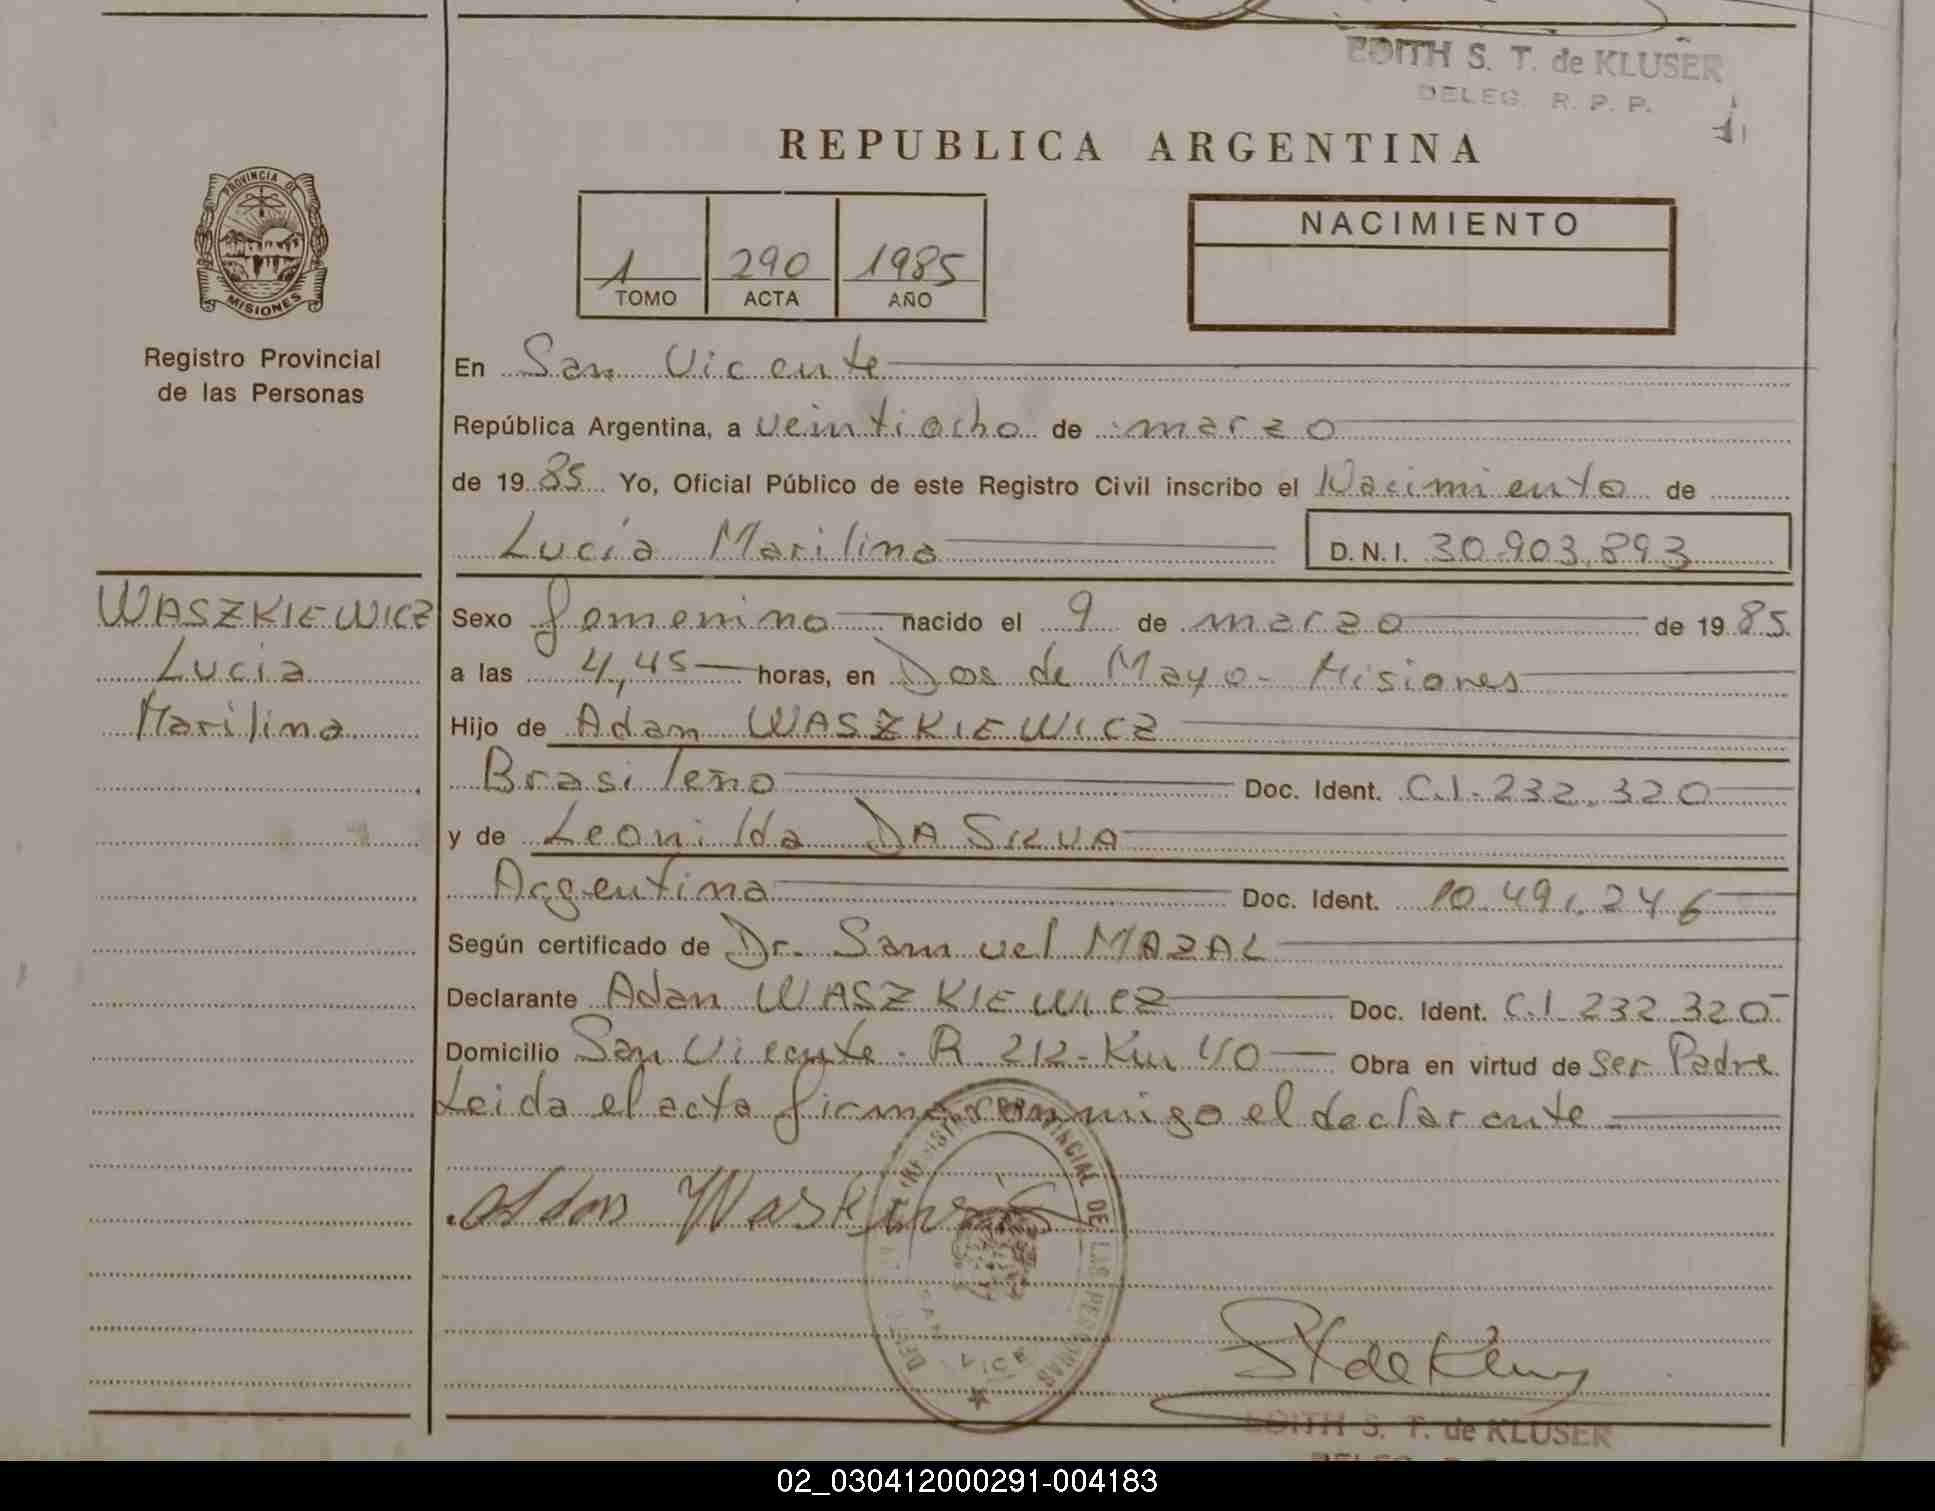 EDITH S. T. de KLUSER
DELEG. R. P. P.
REPUBLICA ARGENTINA
PROVINCIA DE
MISIONES
Registro Provincial
de las Personas
1 290 1985
TOMO ACTA AÑO
NACIMIENTO
En San Vicente
República Argentina, a veintiocho de marzo
de 19 85 Yo, Oficial Público de este Registro Civil inscribo el Nacimiento de
Lucía Marilina D.N.I. 30.903.893
WASZKIEWICZ
Lucia
Marilina
Sexo femenino nacido el 9 de marzo de 19 85
a las 4,45 horas, en Dos de Mayo - Misiones
Hijo de Adan WASZKIEWICZ
Brasileño Doc. Ident. C.I. 232.320
y de Leonilda DA SILVA
Argentina Doc. Ident. 10.491.246
Según certificado de Dr. Samuel MAZAL
Declarante Adan WASZKIEWICZ Doc. Ident. C.I 232.320
Domicilio San Vicente - R 212 - Km 40 Obra en virtud de ser Padre
Leida el acta firma conmigo el declarante
Adan
REGISTRO PROVINCIAL DE LAS PERSONAS
EDITH S. T. de KLUSER
02_030412000291-004183